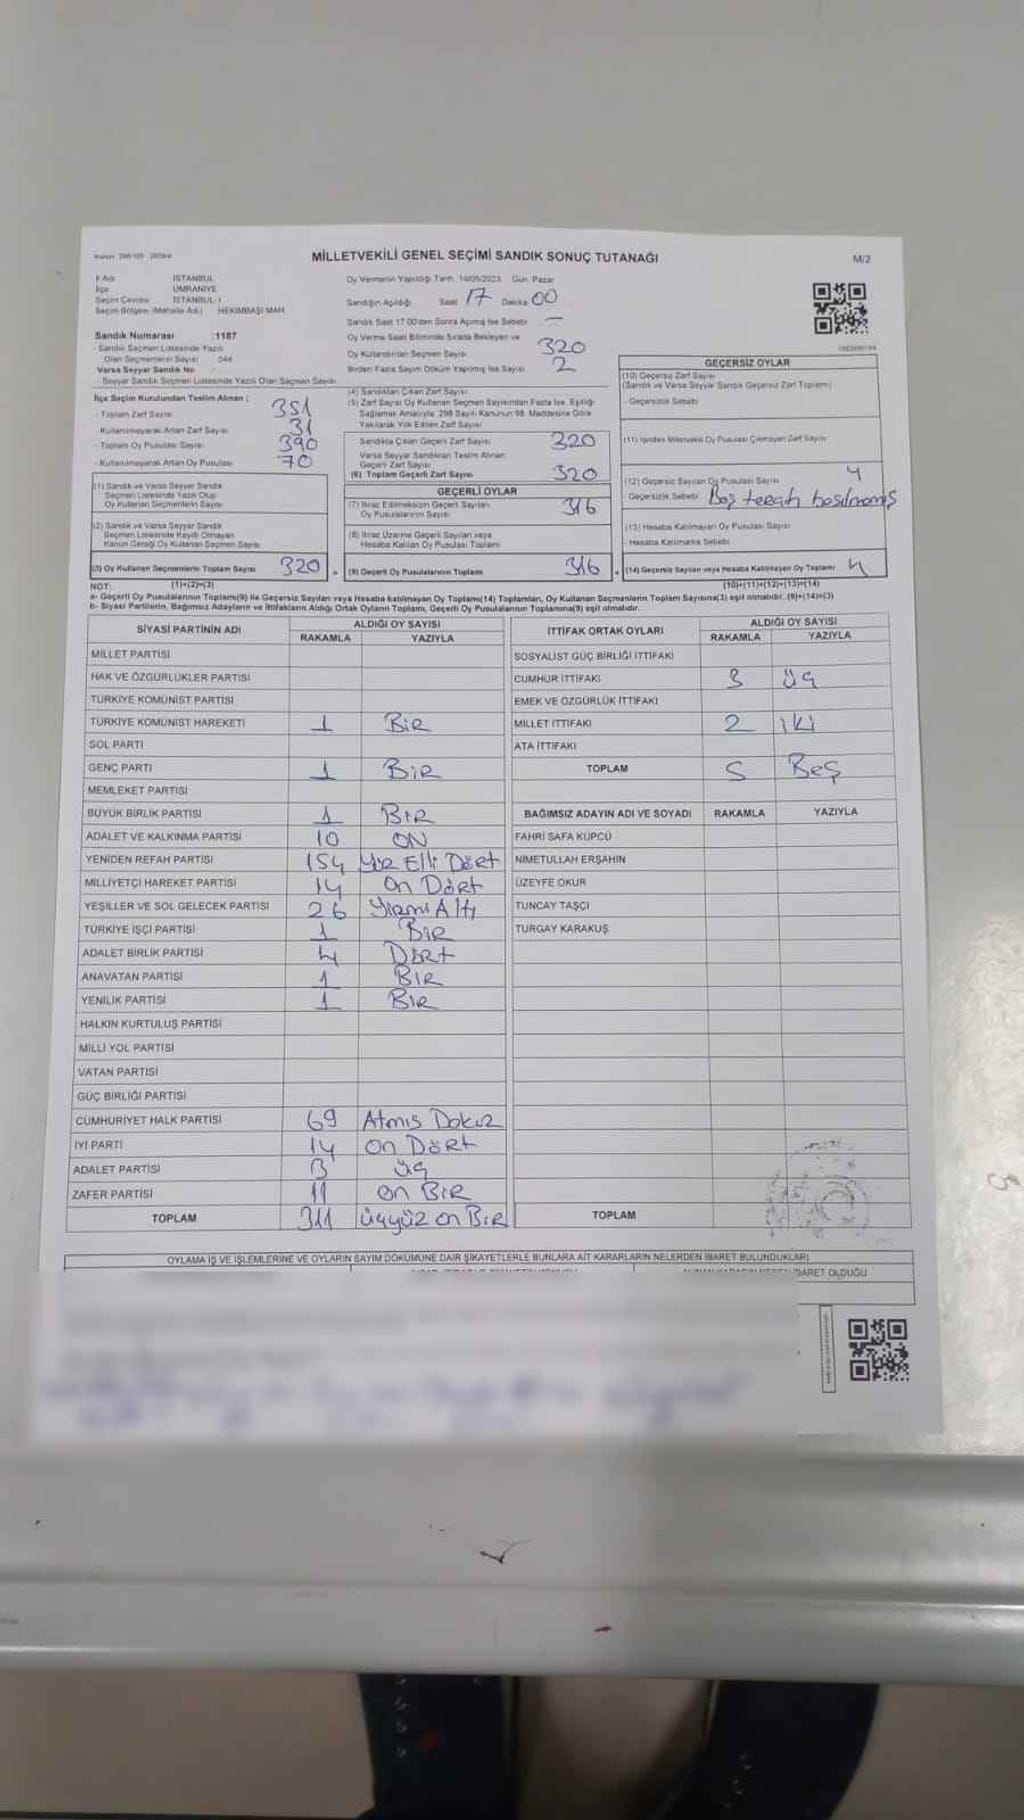 MİLLETVEKİLİ GENEL SEÇİMİ SANDIK SONUÇ TUTANAĞI
M/2
İl Adı İSTANBUL
İlçe ÜMRANİYE
Seçim Çevresi İSTANBUL-1
Seçim Bölgesi (Mahalle Adı) HEKİMBAŞI MAH
Oy Vermenin Yapıldığı Tarih: 14/05/2023 Gün: Pazar
Sandığın Açıldığı Saat 17 Dakika 00
Sandık Saat 17.00'den Sonra Açılmış İse Sebebi —
Sandık Numarası :1187
- Sandık Seçmen Listesinde Yazılı
Olan Seçmenlerin Sayısı
Varsa Seyyar Sandık No
- Seyyar Sandık Seçmen Listesinde Yazılı Olan Seçmen Sayısı
Oy Verme Saati Bitiminde Sırada Bekleyen ve
Oy Kullandırılan Seçmen Sayısı 320
Birden Fazla Sayım Döküm Yapılmış İse Sayısı 2
İlçe Seçim Kurulundan Teslim Alınan :
- Toplam Zarf Sayısı 351
Kullanılmayarak Artan Zarf Sayısı 31
- Toplam Oy Pusulası Sayısı 390
- Kullanılmayarak Artan Oy Pusulası 70
(1) Sandık ve Varsa Seyyar Sandık
Seçmen Listesinde Yazılı Olup
Oy Kullanan Seçmenlerin Sayısı
(2) Sandık ve Varsa Seyyar Sandık
Seçmen Listesinde Kaydı Olmayan
Kanun Gereği Oy Kullanan Seçmen Sayısı
(3) Oy Kullanan Seçmenlerin Toplam Sayısı 320
(1)+(2)=(3)
(4) Sandıktan Çıkan Zarf Sayısı
(5) Zarf Sayısı Oy Kullanan Seçmen Sayısından Fazla İse, Eşitliği
Sağlamak Amacıyla, 298 Sayılı Kanunun 98. Maddesine Göre
Yakılarak Yok Edilen Zarf Sayısı
Sandıkta Çıkan Geçerli Zarf Sayısı 320
Varsa Seyyar Sandıktan Teslim Alınan
Geçerli Zarf Sayısı
(6) Toplam Geçerli Zarf Sayısı 320
GEÇERLİ OYLAR
(7) İtiraz Edilmeksizin Geçerli Sayılan
Oy Pusulalarının Sayısı 316
(8) İtiraz Üzerine Geçerli Sayılan veya
Hesaba Katılan Oy Pusulası Toplamı
(9) Geçerli Oy Pusulalarının Toplamı 316
GEÇERSİZ OYLAR
(10) Geçersiz Zarf Sayısı
(Sandık ve Varsa Seyyar Sandık Geçersiz Zarf Toplamı)
- Geçersizlik Sebebi
(11) İçinden Milletvekili Oy Pusulası Çıkmayan Zarf Sayısı
(12) Geçersiz Sayılan Oy Pusulası Sayısı 4
- Geçersizlik Sebebi Boş tercih basılmamış
(13) Hesaba Katılmayan Oy Pusulası Sayısı
- Hesaba Katılmama Sebebi
(14) Geçersiz Sayılan veya Hesaba Katılmayan Oy Toplamı 4
(10)+(11)+(12)+(13)=(14)
NOT:
a- Geçerli Oy Pusulalarının Toplamı(9) ile Geçersiz Sayılan veya Hesaba katılmayan Oy Toplamı(14) Toplamları, Oy Kullanan Seçmenlerin Toplam Sayısına(3) eşit olmalıdır. (9)+(14)=(3)
b- Siyasi Partilerin, Bağımsız Adayların ve İttifakların Aldığı Ortak Oyların Toplamı, Geçerli Oy Pusulalarının Toplamına(9) eşit olmalıdır.
SİYASİ PARTİNİN ADI
ALDIĞI OY SAYISI
RAKAMLA YAZIYLA
MİLLET PARTİSİ
HAK VE ÖZGÜRLÜKLER PARTİSİ
TÜRKİYE KOMÜNİST PARTİSİ
TÜRKİYE KOMÜNİST HAREKETİ 1 BİR
SOL PARTİ
GENÇ PARTİ 1 BİR
MEMLEKET PARTİSİ
BÜYÜK BİRLİK PARTİSİ 1 BIR
ADALET VE KALKINMA PARTİSİ 10 ON
YENİDEN REFAH PARTİSİ 154 Yüz Elli Dört
MİLLİYETÇİ HAREKET PARTİSİ 14 On Dört
YEŞİLLER VE SOL GELECEK PARTİSİ 26 Yirmi Altı
TÜRKİYE İŞÇİ PARTİSİ 1 BIR
ADALET BİRLİK PARTİSİ 4 Dört
ANAVATAN PARTİSİ 1 BIR
YENİLİK PARTİSİ 1 BIR
HALKIN KURTULUŞ PARTİSİ
MİLLİ YOL PARTİSİ
VATAN PARTİSİ
GÜÇ BİRLİĞİ PARTİSİ
CUMHURİYET HALK PARTİSİ 69 Atmış Dokuz
İYİ PARTİ 14 On Dört
ADALET PARTİSİ 3 üç
ZAFER PARTİSİ 11 on BIR
TOPLAM 311 üçyüz on BIR
İTTİFAK ORTAK OYLARI
ALDIĞI OY SAYISI
RAKAMLA YAZIYLA
SOSYALİST GÜÇ BİRLİĞİ İTTİFAKI
CUMHUR İTTİFAKI 3 üç
EMEK VE ÖZGÜRLÜK İTTİFAKI
MİLLET İTTİFAKI 2 iki
ATA İTTİFAKI
TOPLAM 5 Beş
BAĞIMSIZ ADAYIN ADI VE SOYADI RAKAMLA YAZIYLA
FAHRİ SAFA KÜPCÜ
NİMETULLAH ERŞAHİN
ÜZEYFE OKUR
TUNCAY TAŞÇI
TURGAY KARAKUŞ
TOPLAM
OYLAMA İŞ VE İŞLEMLERİNE VE OYLARIN SAYIM DÖKÜMÜNE DAİR ŞİKAYETLERLE BUNLARA AİT KARARLARIN NELERDEN İBARET BULUNDUKLARI
İBARET OLDUĞU